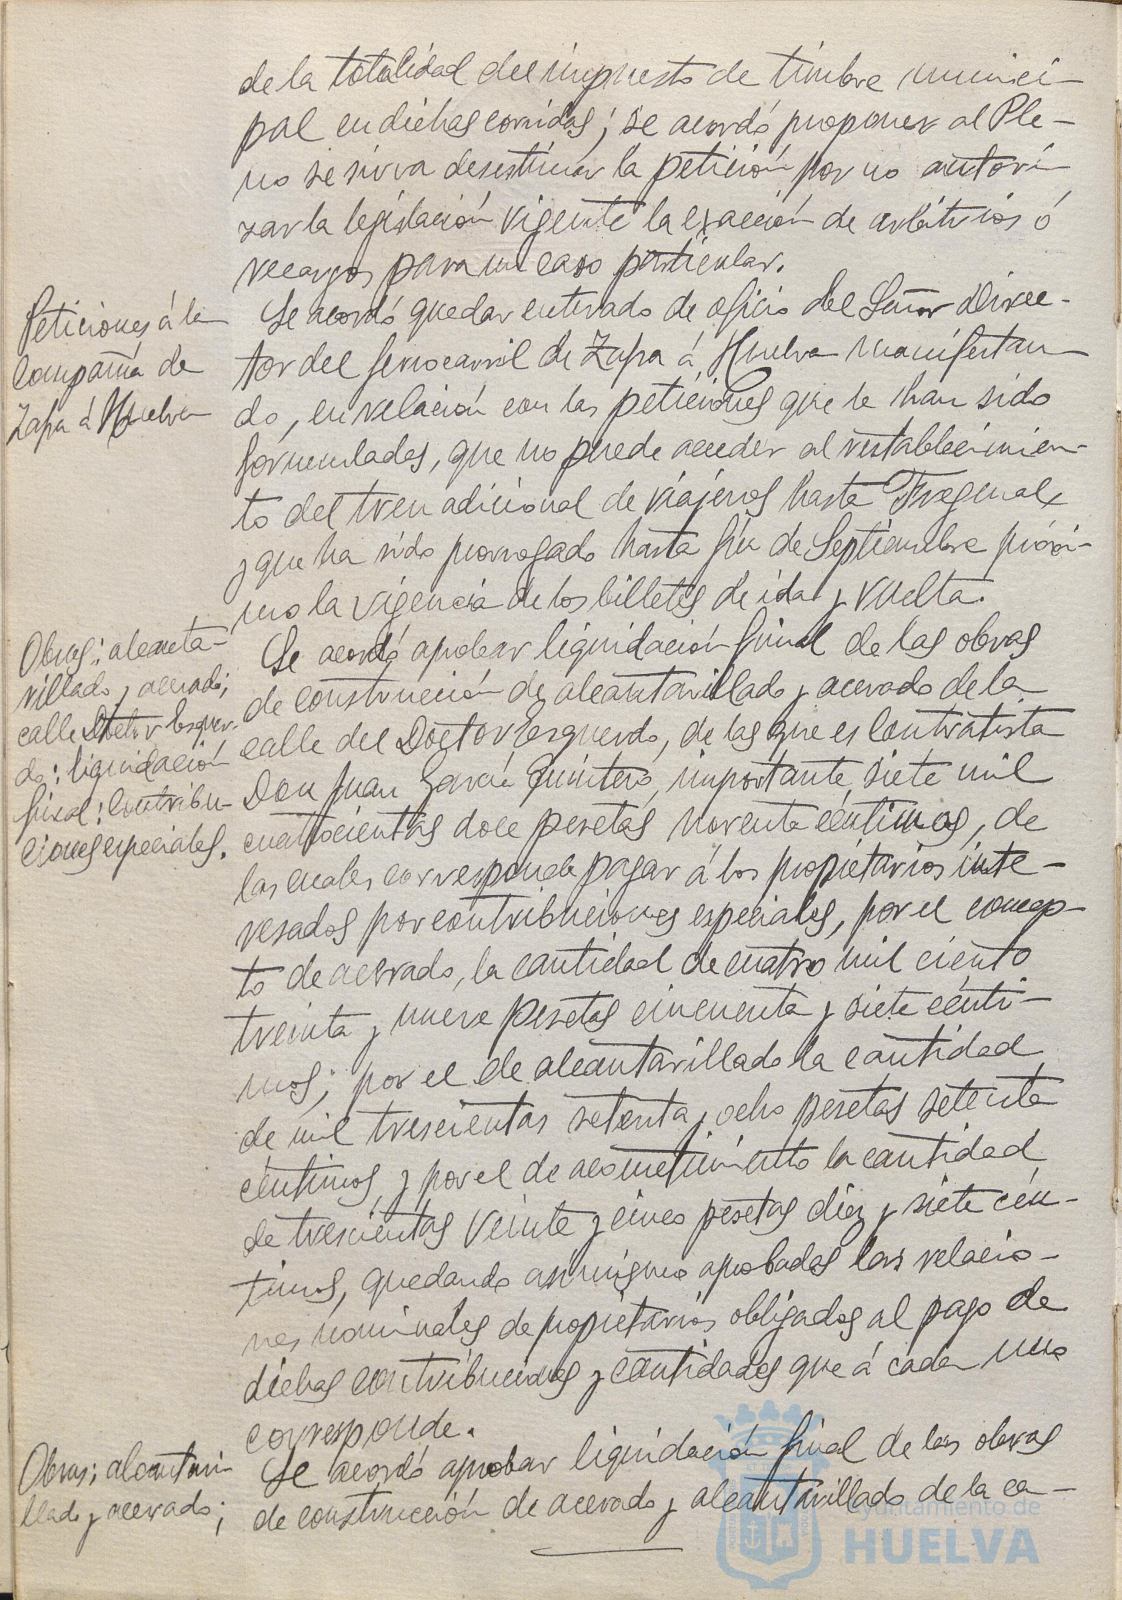 de la totalidad del impuesto de timbre munici-
pal en dichas corridas; se acordó proponer al Ple-
no se sirva desestimar la petición por no autori-
zar la legislación vigente la exacción de arbitrios ó
recargos para un caso particular.
Peticiones á la
Compañía de
Zafra á Huelva
Se acordó quedar enterado de oficio del Señor Direc-
tor del ferrocarril de Zafra á Huelva manifestan-
do, en relación con las peticiones que le han sido
formuladas, que no puede acceder al restablecimien-
to del tren adicional de viajeros hasta Fregenal
y que ha sido prorrogado hasta fin de Septiembre próxi-
mo la vigencia de los billetes de ida y vuelta.
Obras: alcanta-
rillado y acerado;
calle Doctor Esquer-
do: liquidación
final: Contribu-
ciones especiales.
Se acordó aprobar liquidación final de las obras
de construcción de alcantarillado y acerado de la
calle del Doctor Esquerdo, de las que es Contratista
Don Juan García Quintero, importante, siete mil
cuatrocientas doce pesetas noventa céntimos, de
las cuales corresponde pagar á los propietarios inte-
resados por contribuciones especiales, por el concep-
to de acerado, la cantidad de cuatro mil ciento
treinta y nueve pesetas cincuenta y siete cénti-
mos; por el de alcantarillado la cantidad
de mil trescientas setenta y ocho pesetas setenta
céntimos, y por el de acometimiento la cantidad
de trescientas veinte y cinco pesetas diez y siete cén-
timos, quedando asimismo aprobadas las relacio-
nes nominales de propietarios obligados al pago de
dichas contribuciones y cantidades que á cada uno
corresponde.
Obras; alcantari-
llado y acerado;
Se acordó aprobar liquidación final de las obras
de construcción de acerado y alcantarillado de la ca-
Ayuntamiento de
HUELVA